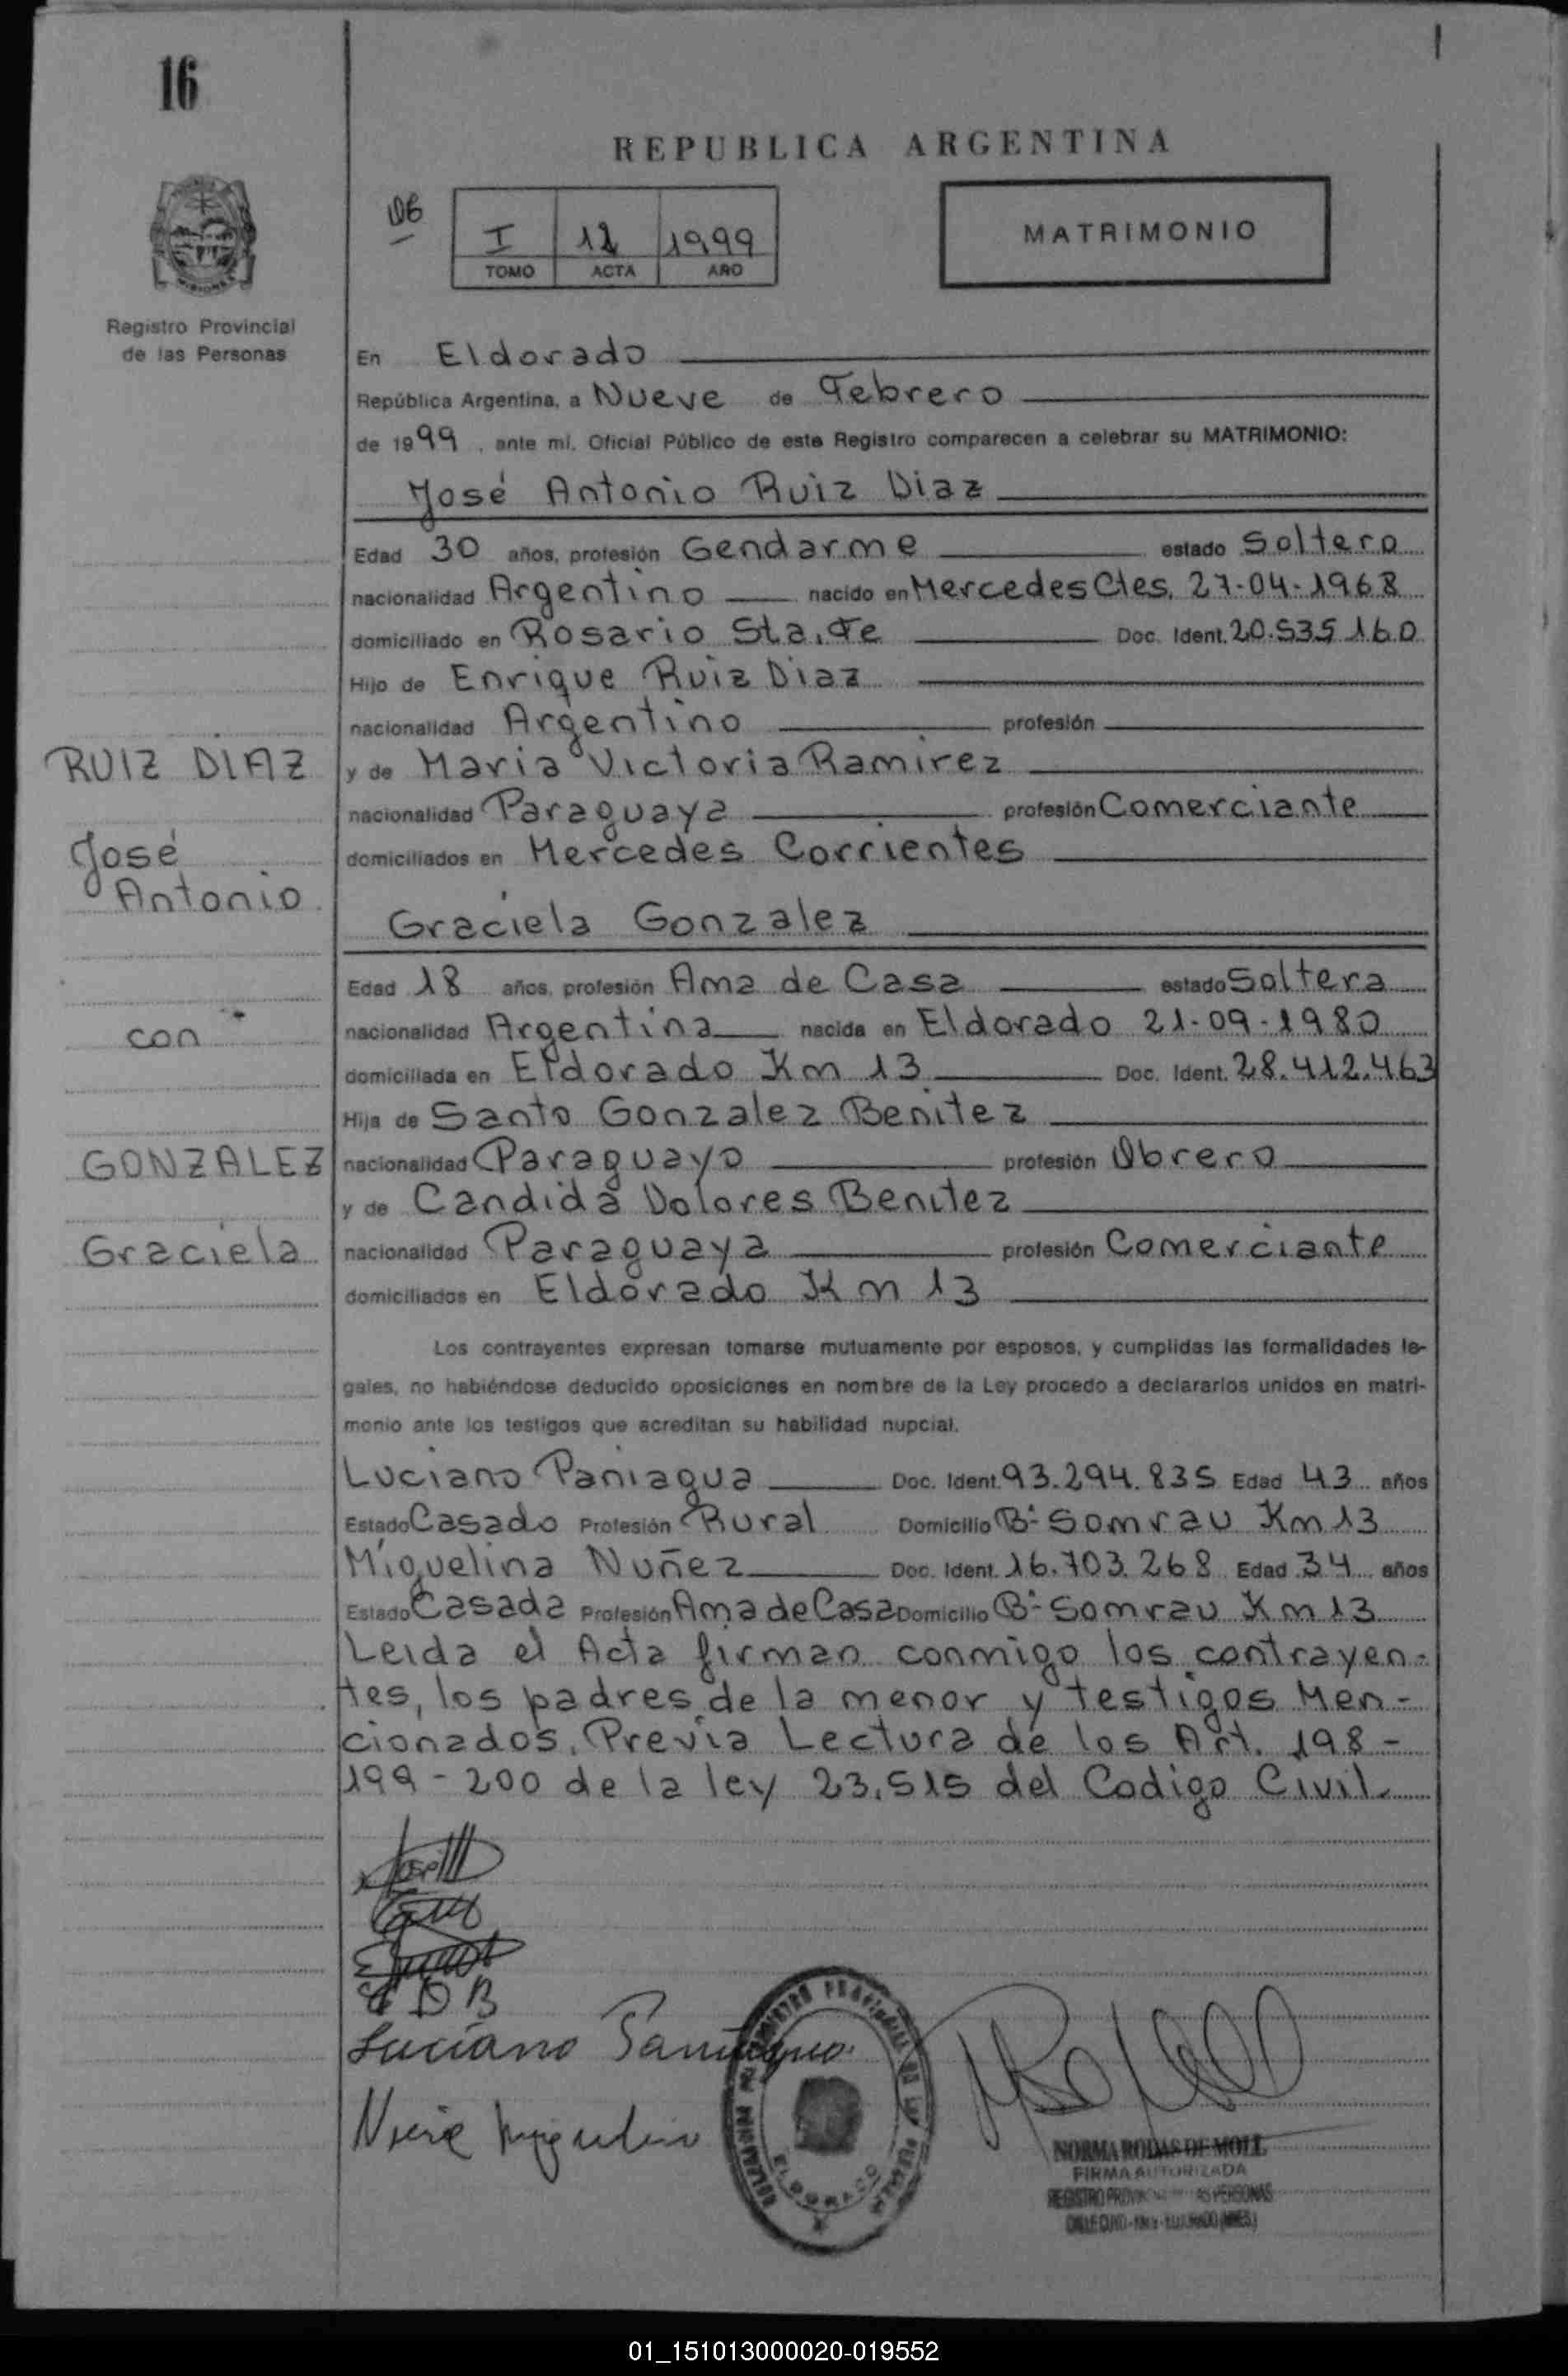 16
REPUBLICA ARGENTINA
I 12 1999
TOMO ACTA AÑO
MATRIMONIO
Registro Provincial
de las Personas
En Eldorado
República Argentina, a Nueve de Febrero
de 1999, ante mí, Oficial Público de este Registro comparecen a celebrar su MATRIMONIO:
José Antonio Ruiz Diaz
Edad 30 años, profesión Gendarme estado Soltero
nacionalidad Argentino nacido en Mercedes Ctes. 27-04-1968
domiciliado en Rosario Sta. Fe Doc. Ident. 20.535.160
Hijo de Enrique Ruiz Diaz
nacionalidad Argentino profesión
RUIZ DIAZ
y de Maria Victoria Ramirez
nacionalidad Paraguaya profesión Comerciante
José
domiciliados en Mercedes Corrientes
Antonio
Graciela Gonzalez
Edad 18 años, profesión Ama de Casa estado Soltera
con
nacionalidad Argentina nacida en Eldorado 21-09-1980
domiciliada en Eldorado Km 13 Doc. Ident. 28.412.463
Hija de Santo Gonzalez Benitez
GONZALEZ
nacionalidad Paraguayo profesión Obrero
y de Candida Dolores Benitez
Graciela
nacionalidad Paraguaya profesión Comerciante
domiciliados en Eldorado Km 13
Los contrayentes expresan tomarse mutuamente por esposos, y cumplidas las formalidades le-
gales, no habiéndose deducido oposiciones en nombre de la Ley procedo a declararlos unidos en matri-
monio ante los testigos que acreditan su habilidad nupcial.
Luciano Paniagua Doc. Ident. 93.294.835 Edad 43 años
Estado Casado Profesión Rural Domicilio B° Somrau Km 13
Miguelina Nuñez Doc. Ident. 16.703.268 Edad 34 años
Estado Casada Profesión Ama de Casa Domicilio B° Somrau Km 13
Leida el Acta firman conmigo los contrayen-
tes, los padres de la menor y testigos Men-
cionados. Previa Lectura de los Art. 198-
199-200 de la ley 23.515 del Codigo Civil.
C D B
Luciano Paniagua
ELDORADO
NORMA RODAS DE MOLL
FIRMA AUTORIZADA
REGISTRO PERSONAS
01_151013000020-019552